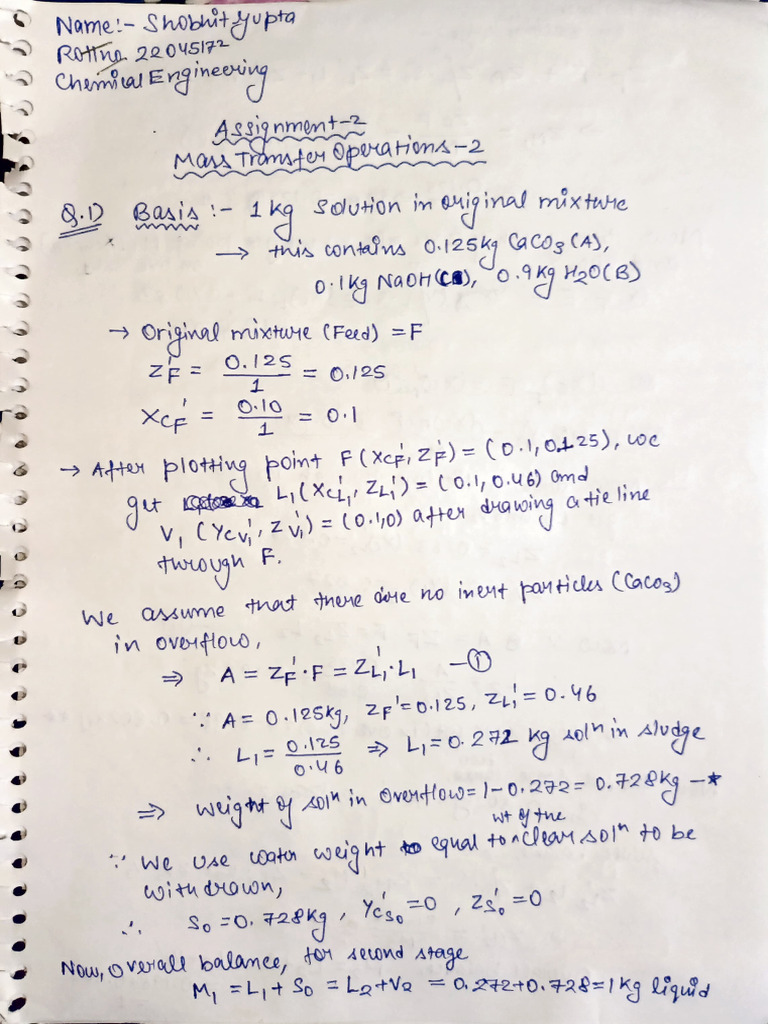 Name:- Shobhit Gupta
Rollno. 22045172
Chemical Engineering
Assignment-2
Mass Transfer Operations-2
Q.1) Basis :- 1 kg solution in original mixture
→ this contains 0.125kg CaCO3 (A),
0.1kg NaOH (C), 0.9kg H2O (B)
→ Original mixture (Feed) = F
ZF' = 0.125/1 = 0.125
XCF' = 0.10/1 = 0.1
→ After plotting point F(XCF', ZF') = (0.1, 0.125), we
get L1 (XCL1', ZL1') = (0.1, 0.46) and
V1 (YCV1', ZV1') = (0.1, 0) after drawing a tie line
through F.
We assume that there are no inert particles (CaCO3)
in overflow,
⇒ A = ZF'·F = ZL1'·L1 —①
∵ A = 0.125kg, ZF' = 0.125, ZL1' = 0.46
∴ L1 = 0.125/0.46 ⇒ L1 = 0.272 kg solⁿ in sludge
⇒ weight of solⁿ in overflow = 1-0.272 = 0.728kg —*
∵ We use water weight equal to wt of the clear solⁿ to be
withdrawn,
∴ S0 = 0.728kg, YCS0' = 0, ZS0' = 0
Now, overall balance, for second stage
M1 = L1 + S0 = L2 + V2 = 0.272+0.728 = 1 kg liquid